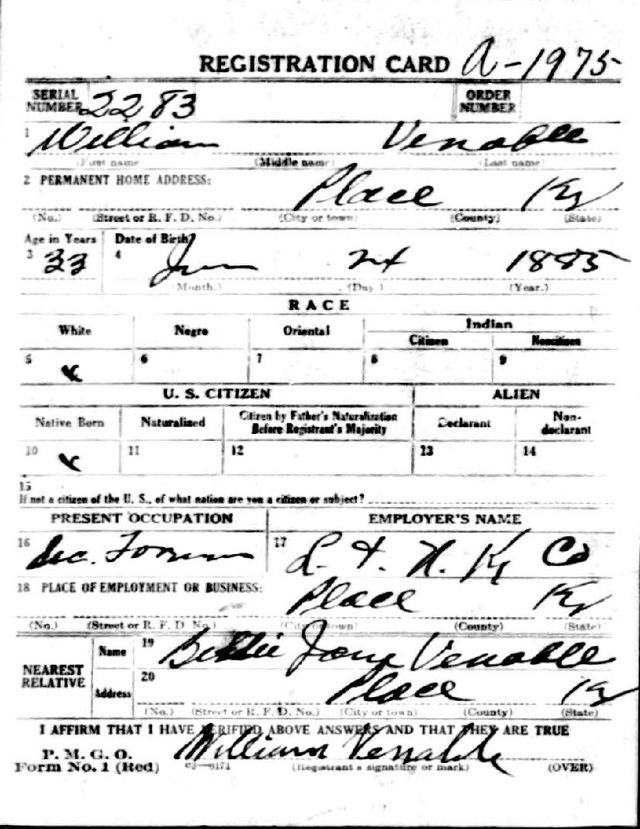 REGISTRATION CARD A-1975
SERIAL NUMBER 2283 ORDER NUMBER
1 William Venable
(First name) (Middle name) (Last name)
2 PERMANENT HOME ADDRESS:
Place Ky
(No.) (Street or R. F. D. No.) (City or town) (County) (State)
Age in Years Date of Birth?
3 33 4 Jun 24 1885
(Month.) (Day) (Year.)
RACE
White Negro Oriental Indian
Citizen Noncitizen
5 x 6 7 8 9
U. S. CITIZEN ALIEN
Native Born Naturalized Citizen by Father's Naturalization Before Registrant's Majority Declarant Non-declarant
10 x 11 12 13 14
15
If not a citizen of the U. S., of what nation are you a citizen or subject?
PRESENT OCCUPATION EMPLOYER'S NAME
16 Sec. Foreman 17 L. & N. Ry Co
18 PLACE OF EMPLOYMENT OR BUSINESS:
Place Ky
(No.) (Street or R. F. D. No.) (City or town) (County) (State)
NEAREST RELATIVE
Name 19 Bettie Jane Venable
Address 20 Place Ky
(No.) (Street or R. F. D. No.) (City or town) (County) (State)
I AFFIRM THAT I HAVE VERIFIED ABOVE ANSWERS AND THAT THEY ARE TRUE
P. M. G. O.
Form No. 1 (Red) William Venable
(Registrant's signature or mark) (OVER)